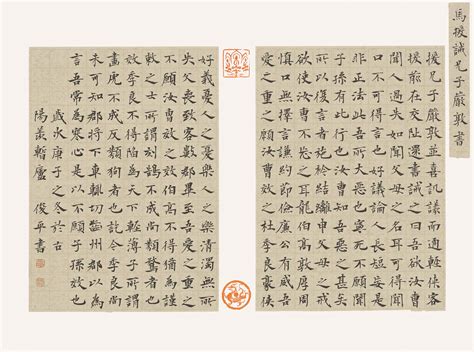 馬援誡兄子嚴敦書
援兄子嚴敦並喜譏議而通輕俠客
援前在交阯還書誡之曰吾欲汝曹
聞人過失如聞父母之名耳可得聞
口不可得言也好論議人長短妄是
非正法此吾所大惡也寧死不願聞
子孫有此行也汝曹知吾惡之甚矣
所以復言者施衿結縭申父母之戒
欲使汝曹不忘之耳龍伯高敦厚周
慎口無擇言謙約節儉廉公有威吾
愛之重之願汝曹效之杜季良豪俠
好義憂人之憂樂人之樂清濁無所
失父喪致客數郡畢至吾愛之重之
不願汝曹效也效伯高不得猶為謹
敕之士所謂刻鵠不成尚類鶩者也
效季良不得陷為天下輕薄子所謂
畫虎不成反類狗者也訖今季良尚
未可知郡將下車輒切齒州郡以為
言吾常為寒心是以不願子孫效也
歲次庚子之冬於古
陽羨暫廬 俊平書